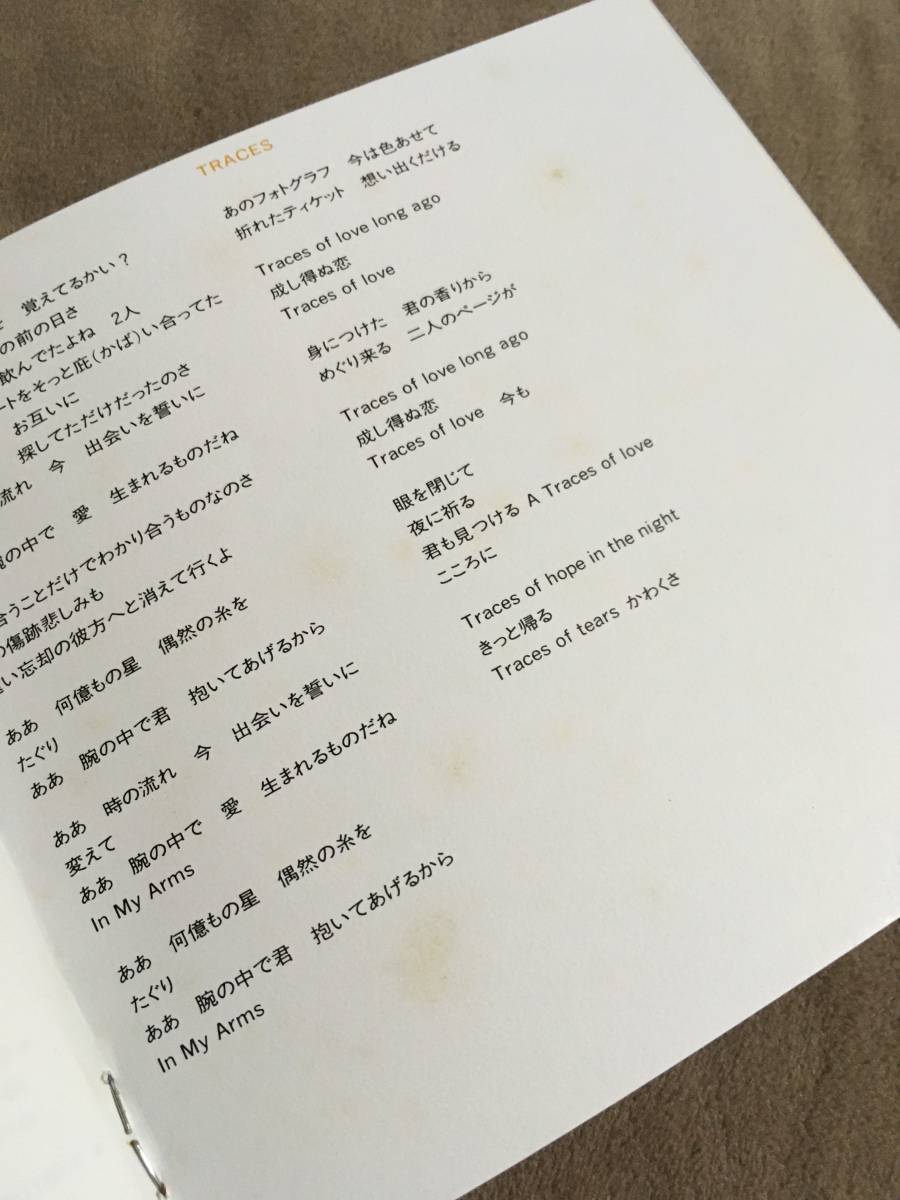 TRACES
覚えてるかい？
の前の日さ
飲んでたよね　2人
ートをそっと庇（かば）い合ってた
お互いに
探してただけだったのさ
流れ　今　出会いを誓いに
腕の中で　愛　生まれるものだね
合うことだけでわかり合うものなのさ
の傷跡悲しみも
い忘却の彼方へと消えて行くよ
ああ　何億もの星　偶然の糸を
たぐり
ああ　腕の中で君　抱いてあげるから
ああ　時の流れ　今　出会いを誓いに
変えて
ああ　腕の中で　愛　生まれるものだね
In My Arms
ああ　何億もの星　偶然の糸を
たぐり
ああ　腕の中で君　抱いてあげるから
In My Arms
あのフォトグラフ　今は色あせて
折れたティケット　想い出くだける
Traces of love long ago
成し得ぬ恋
Traces of love
身につけた　君の香りから
めぐり来る　二人のページが
Traces of love long ago
成し得ぬ恋
Traces of love　今も
眼を閉じて
夜に祈る
君も見つける A Traces of love
こころに
Traces of hope in the night
きっと帰る
Traces of tears かわくさ